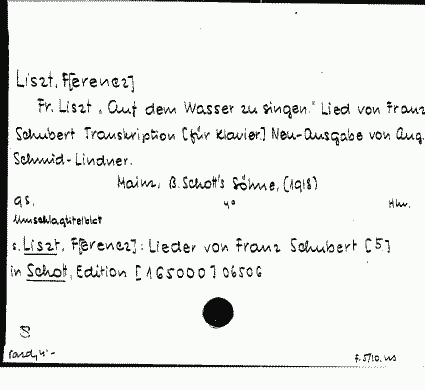 Liszt, F[erenc]
Fr. Liszt „Auf dem Wasser zu singen." Lied von Franz
Schubert Transkription [für Klavier.] Neu-Ausgabe von Aug.
Schmid-Lindner.
Mainz, B. Schott's Söhne, (1918)
9 S. 4°
Umschlagtitelblct
s. Liszt, F[erenc]: Lieder von Franz Schubert [5]
in Schott, Edition [165000] 06506